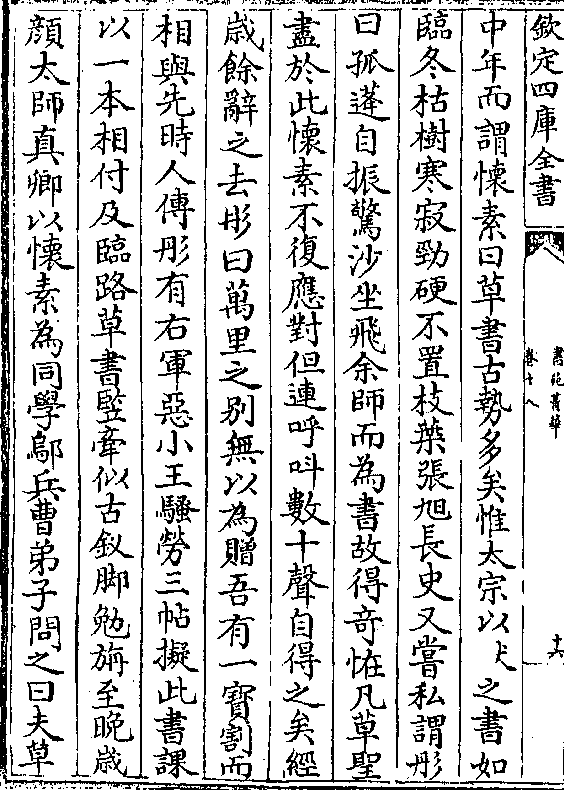 欽定四庫全書
書苑菁華
卷十八
十六
中年而謂懷素曰草書古勢多矣惟太宗以之書如
臨冬枯樹寒寂勁硬不置枝葉張旭長史又嘗私謂彤
曰孤蓬自振驚沙坐飛余師而為書故得奇恠凡草聖
盡於此懷素不復應對但連呼呌數十聲自得之矣經
歲餘辭之去彤曰萬里之別無以為贈吾有一寳割而
相與先時人傳彤有右軍惡小王騷勞三帖擬此書課
以一本相付及臨路草書竪牽似古釵脚勉旃至晚歲
顔太師真卿以懷素為同學鄔兵曹弟子問之曰夫草